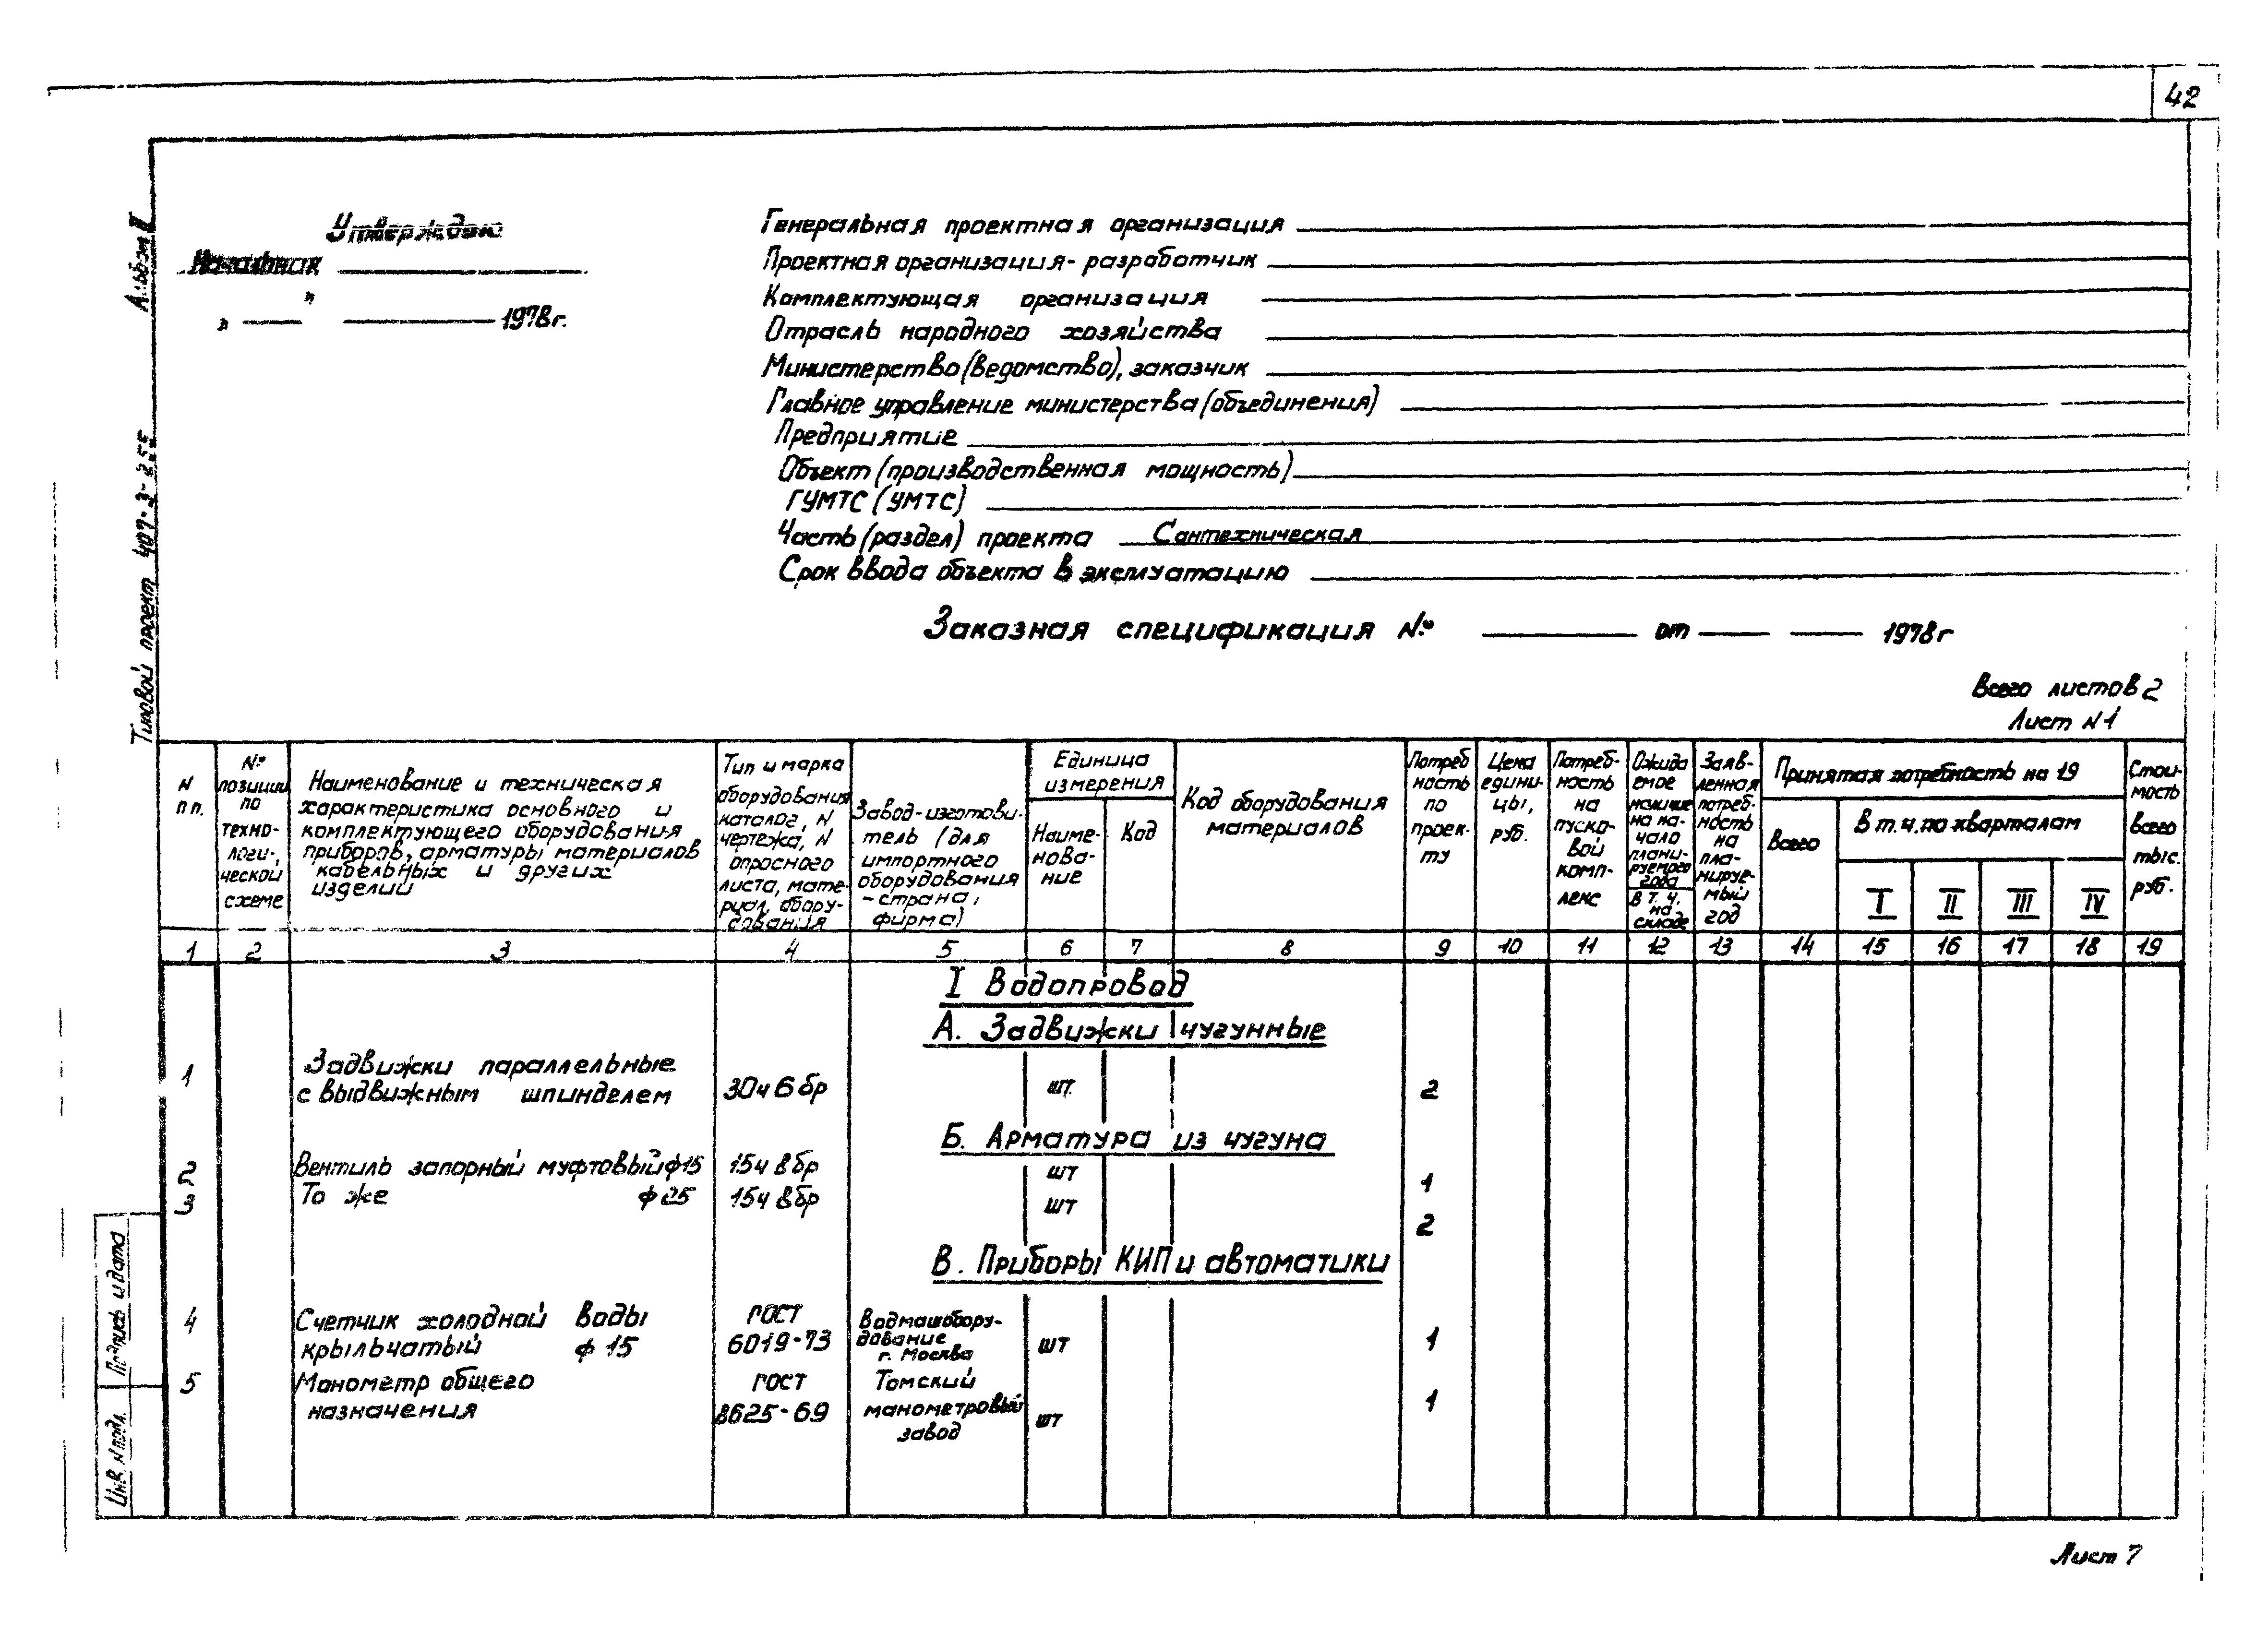 42
Альбом II
Типовой проект 407-3-255
Утверждаю
Начальник
" " 1978г.
Генеральная проектная организация
Проектная организация-разработчик
Комплектующая организация
Отрасль народного хозяйства
Министерство (ведомство), заказчик
Главное управление министерства (объединения)
Предприятие
Объект (производственная мощность)
ГУМТС (УМТС)
Часть (раздел) проекта Сантехническая
Срок ввода объекта в эксплуатацию
Заказная спецификация № от 1978г
Всего листов 2
Лист N1
N
п п.
№
позиции
по
техно-
логи-
ческой
схеме
Наименование и техническая
характеристика основного и
комплектующего оборудования
приборов, арматуры материалов
кабельных и других
изделий
Тип и марка
оборудования
каталог, N
чертежа, N
опросного
листа, мате-
риал, обору-
дования
Завод-изготови-
тель (для
импортного
оборудования
-страна,
фирма)
Единица
измерения
Наиме-
нова-
ние
Код
Код оборудования
материалов
Потреб
ность
по
проек-
ту
Цена
едини-
цы,
руб.
Потреб-
ность
на
пуско-
вой
комп-
лекс
Ожида
емое
наличие
на на-
чало
плани-
руемого
года
в т. ч.
на
складе
Заяв-
ленная
потреб-
ность
на
пла-
нируе-
мый
год
Принятая потребность на 19
Всего
В т. ч. по кварталам
I II III IV
Стои-
мость
всего
тыс.
руб.
1 2 3 4 5 6 7 8 9 10 11 12 13 14 15 16 17 18 19
I Водопровод
А. Задвижки чугунные
1 Задвижки параллельные
с выдвижным шпинделем 30ч6бр шт. 2
Б. Арматура из чугуна
2 Вентиль запорный муфтовый ф15 15ч8бр шт 1
3 То же ф25 15ч8бр шт 2
В. Приборы КИП и автоматики
4 Счетчик холодной воды ГОСТ Водмашобору-
крыльчатый ф 15 6019-73 дование шт 1
г. Москва
5 Манометр общего ГОСТ Томский
назначения 8625-69 манометровый шт 1
завод
Подпись и дата
Инв. N подл.
Лист 7